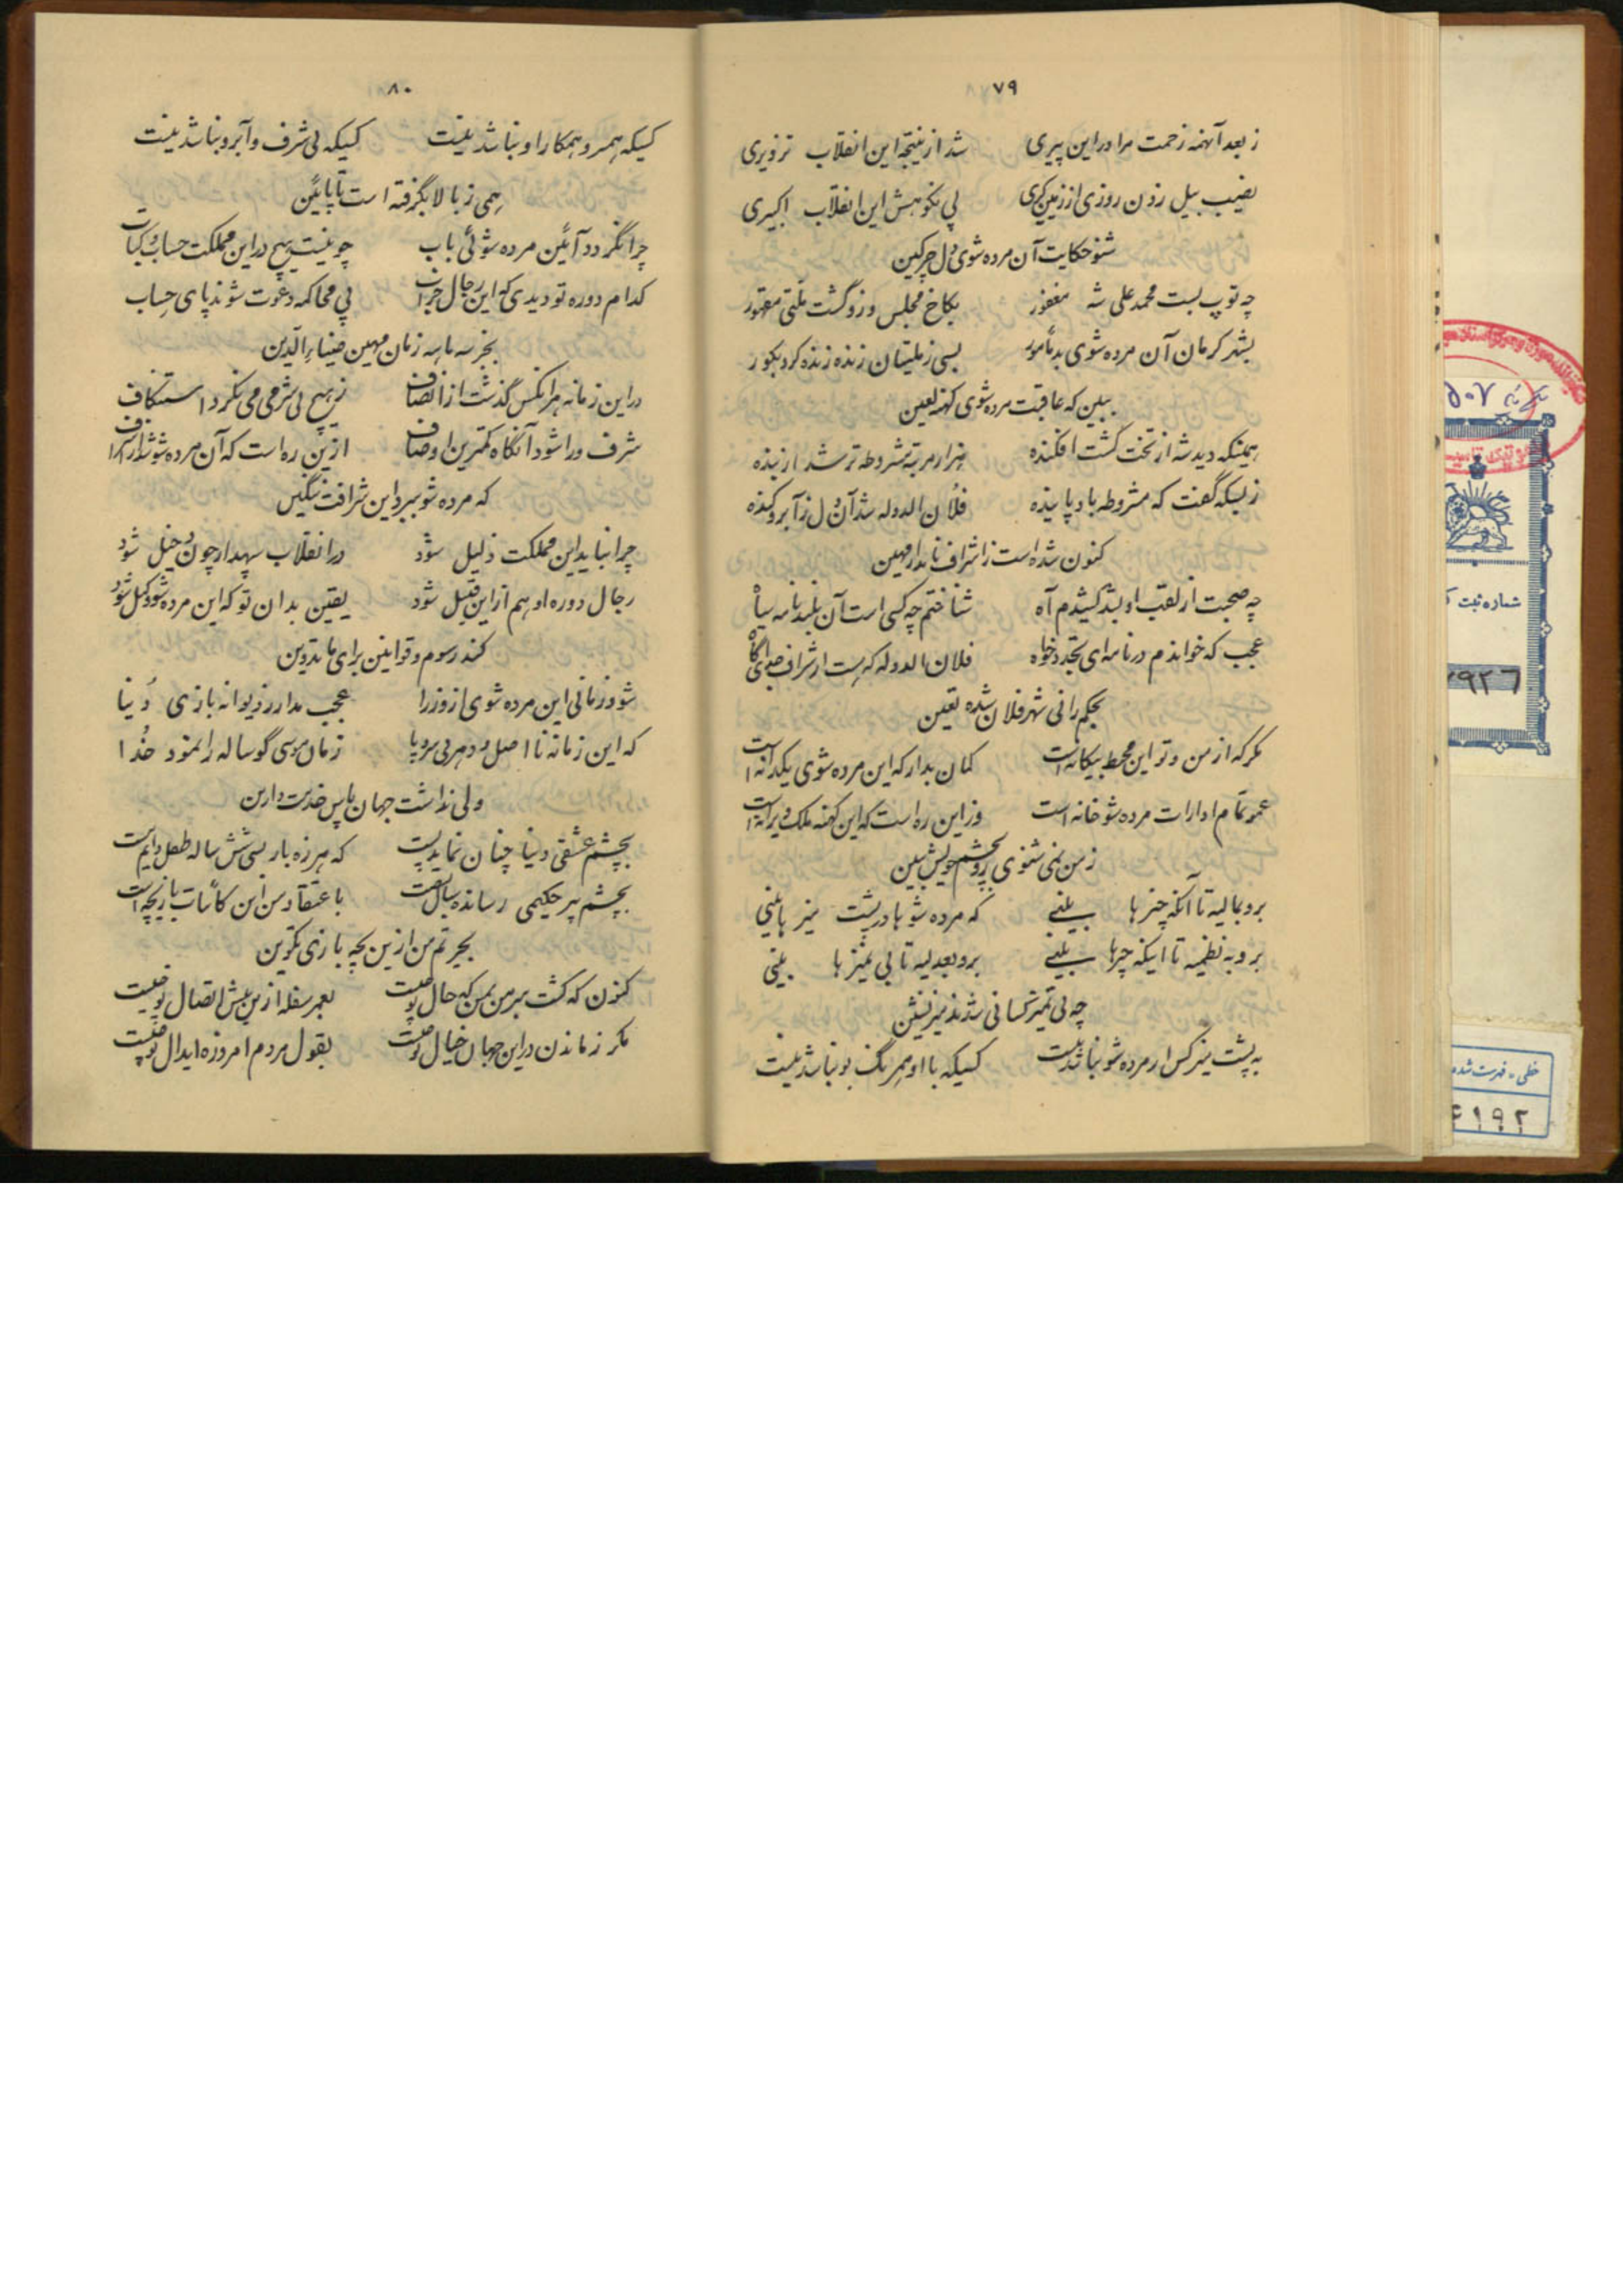 ۷۹
ز بعد آنهمه زحمت مرا در این پیری شد از نتیجه این انقلاب تزویری
نصیب بیل زدن روزی از زمین گیری پی نکوهش این انقلاب اکبیری
شنو حکایت آن مرده شوی دل چرکین
چه توپ بست محمد علی شه مغفور بکاخ مجلس و زو گشت ملتی مقهور
بشهر کرمان آن مرده شوی بد مأمور بسی ز ملتیان زنده زنده کرد بگور
ببین که عاقبت مرده شوی کهنه لعین
همینکه دید شه از تخت گشت افکنده هزار مرتبه مشروطه تر شد از بنده
ز بسکه گفت که مشروطه باد پاینده فلان الدوله شد آن دل ز آبرو کنده
کنون شده است ز اشراف نامدار مهین
چه صحبت از لقب او بشد کشیدم آه شناختم چه کسی است آن پلید نامه سیاه
عجب که خواندم در نامه ای تجدد خواه فلان الدوله که هست از شراف جوی آگاه
بحکم رانی شهر فلان شده تعیین
مگر که از من و تو این محیط بیگانه است گمان مدار که این مرده شوی یکدانه است
عمو تمام ادارات مرده شو خانه است وز این ره است که این کهنه ملک ویرانه است
ز من نمی شنوی رو بچشم خویش ببین
برو بمالیه تا آنکه چیزها بینی که مرده شوها در پشت میزها بینی
برو به نظمیه تا اینکه چیزها بینی برو بعدلیه تا بی تمیزها بینی
چه بی تمیز کسانی شدند میز نشین
به پشت میز کس ار مرده شو نباشد نیست کسیکه با او همرنگ و بو نباشد نیست
۸۰
کسیکه همسر و همکار او نباشد نیست کسیکه بی شرف و آبرو نباشد نیست
همی ز بالا بگرفته است تا پایین
چرا نگردد آئین مرده شوئی باب چو نیست هیچ در این مملکت حساب و کتاب
کدام دوره تو دیدی که این رجال خراب پی محاکمه دعوت شوند پای حساب
بجز سه ماهه زمان مهین ضیاء الدین
در این زمانه هر آنکس گذشت از انصاف ز هیچ بی شرمی می نکرد استنکاف
شرف ورا شود آنگاه کمترین اوصاف از این ره است که آن مرده شو شد از اشراف
که مرده شو ببرد این شرافت ننگین
چرا نباید این مملکت ذلیل شود در انقلاب سپهدار چون دخیل شود
رجال دوره او هم از این قبیل شود یقین بدان تو که این مرده شو وکیل شود
کند رسوم و قوانین برای ما تدوین
شود زمانی این مرده شوی از وزرا عجب مدار ز دیوانه بازی دنیا
که این زمانه نا اصل و دهر بی سر و پا زمان موسی گوساله را نمود خدا
ولی نداشت جهان پاس خدمت دارین
بچشم عشقی دنیا چنان نماید پست که هرزه بازی شش ساله طفل دایم است
بچشم پیر حکیمی رسانده سال بشصت باعتقاد من این کائنات بازیچه است
بحیرتم من از این بچه بازی تکوین
کنون که گشت مبرهن بمن که حال تو چیست بعمر سفله از این بیش اتصال تو چیست
مگر ز ماندن در این جهان خیال تو چیست بقول مردم امروزه ایدال تو چیست
۵۰۷
شماره ثبت ک
۹۲۶
خطی - فهرست شده
۶۱۹۲